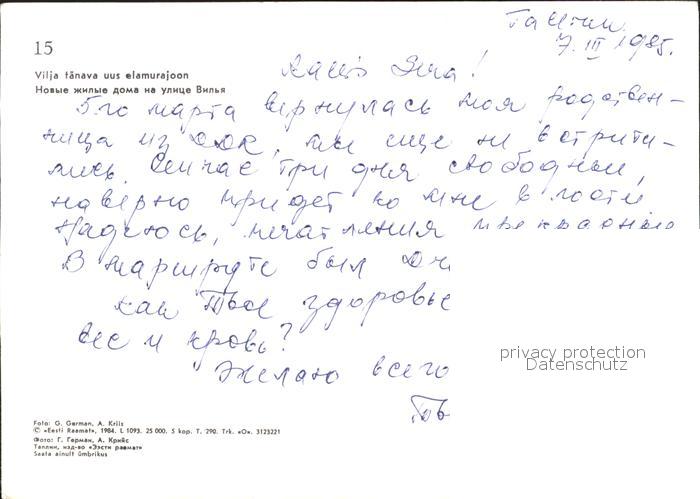 15
Vilja tänava uus elamurajoon
Новые жилые дома на улице Вилья
Таллин
7. III 1985.
5го марта вернулась моя родствен-
ница из, мы еще не встрети-
лись. Сейчас три дня свободных,
наверно придет ко мне в гости
Надеюсь, впечатления прекрасные
В маршруте был
как Твое здоровье
вес и кровь?
Желаю всего
Тв
privacy protection
Datenschutz
Foto: G. German, A. Kriis
© «Eesti Raamat», 1984. L 1093. 25 000. 5 kop. T. 290. Trk. «O». 3123221
Фото: Г. Герман, А. Крийс
Таллин, изд-во «Ээсти раамат»
Saata ainult ümbrikus